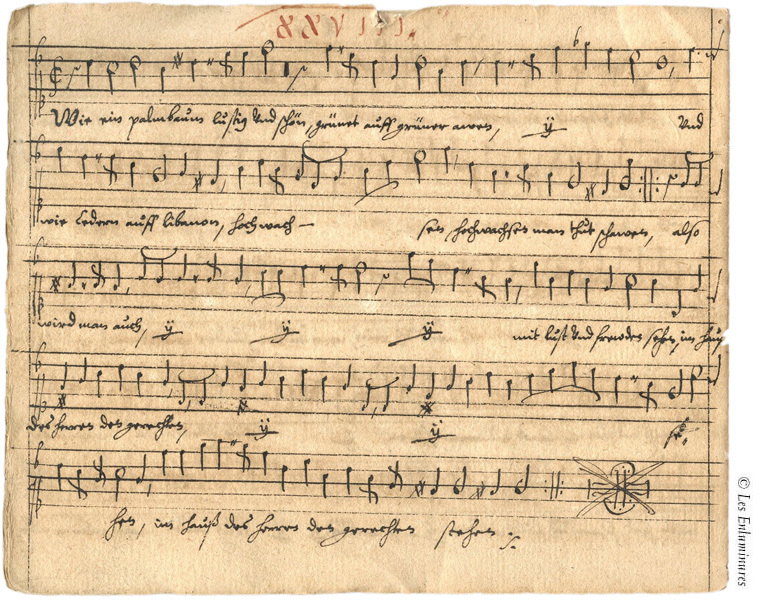 XXVIII.
Wie ein palmbaum lustig vnd schön, grünet auff grüner awen, ÿ Vnd
wie Cedern auff libanon, hoch wach- sen hochwachsen man thut schawen, also
wird man auch, ÿ ÿ ÿ mit lust vnd frewden sehen, im hauß
des herren den gerechten, ÿ ÿ
hen, im hauß des herren den gerechten stehen.
© Les Enluminures